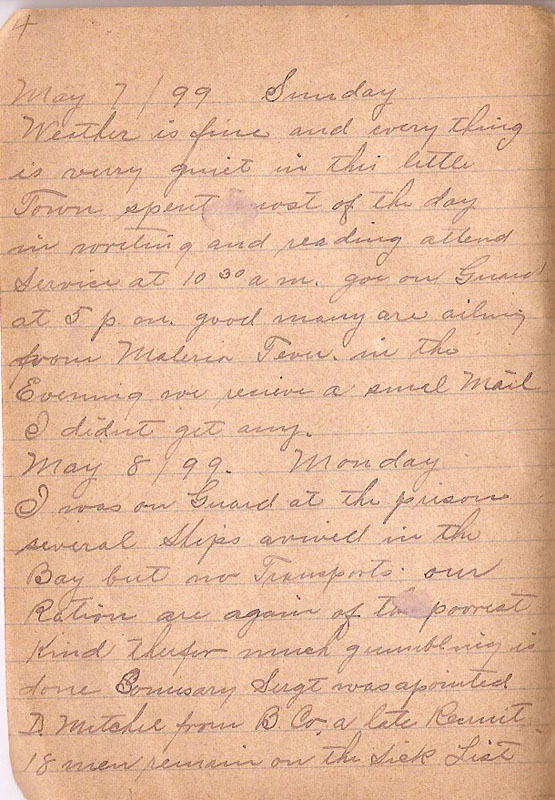 4
May 7/99 Sunday
Weather is fine and every thing
is verry quiet in this little
Town spent most of the day
in writing and reading attend
Service at 10 30 a m. goe on Guard
at 5 p. m. good many are ailing
from Maleria Fever. in the
Evening we recieve a smal Mail
I didnt get any.
May 8/99. Monday
I was on Guard at the prison
several Ships arived in the
Bay but no Transports. our
Ration are again of the poorest
Kind therfor much grumbling is
done Comusary Sergt was apointed
D. Mitchel from B Co. a late Recruit.
18 men remain on the Sick List